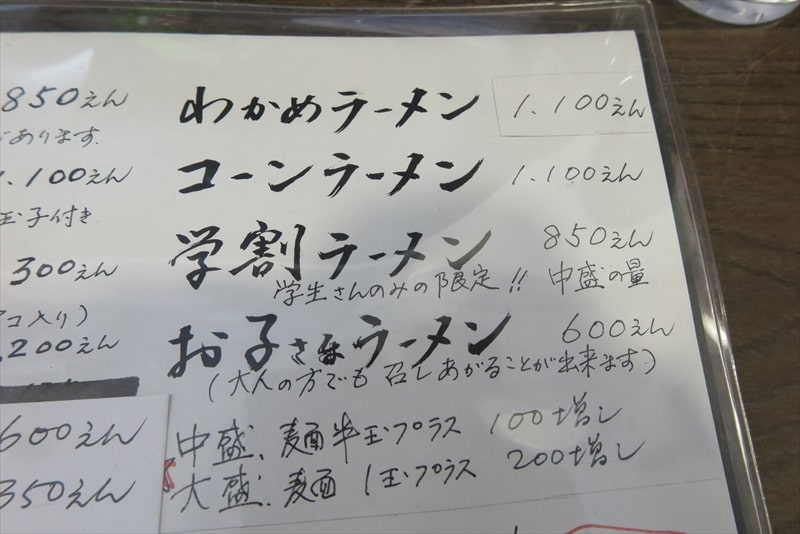 850えん
あります.
1.100えん
玉子付き
300えん
入り)
200えん
600えん
350えん
わかめラーメン 1.100えん
コーンラーメン 1.100えん
学割ラーメン 850えん
学生さんのみの限定!! 中盛の量
お子さまラーメン 600えん
(大人の方でも召しあがることが出来ます)
中盛.麺半玉プラス 100増し
大盛.麺 1玉プラス 200増し